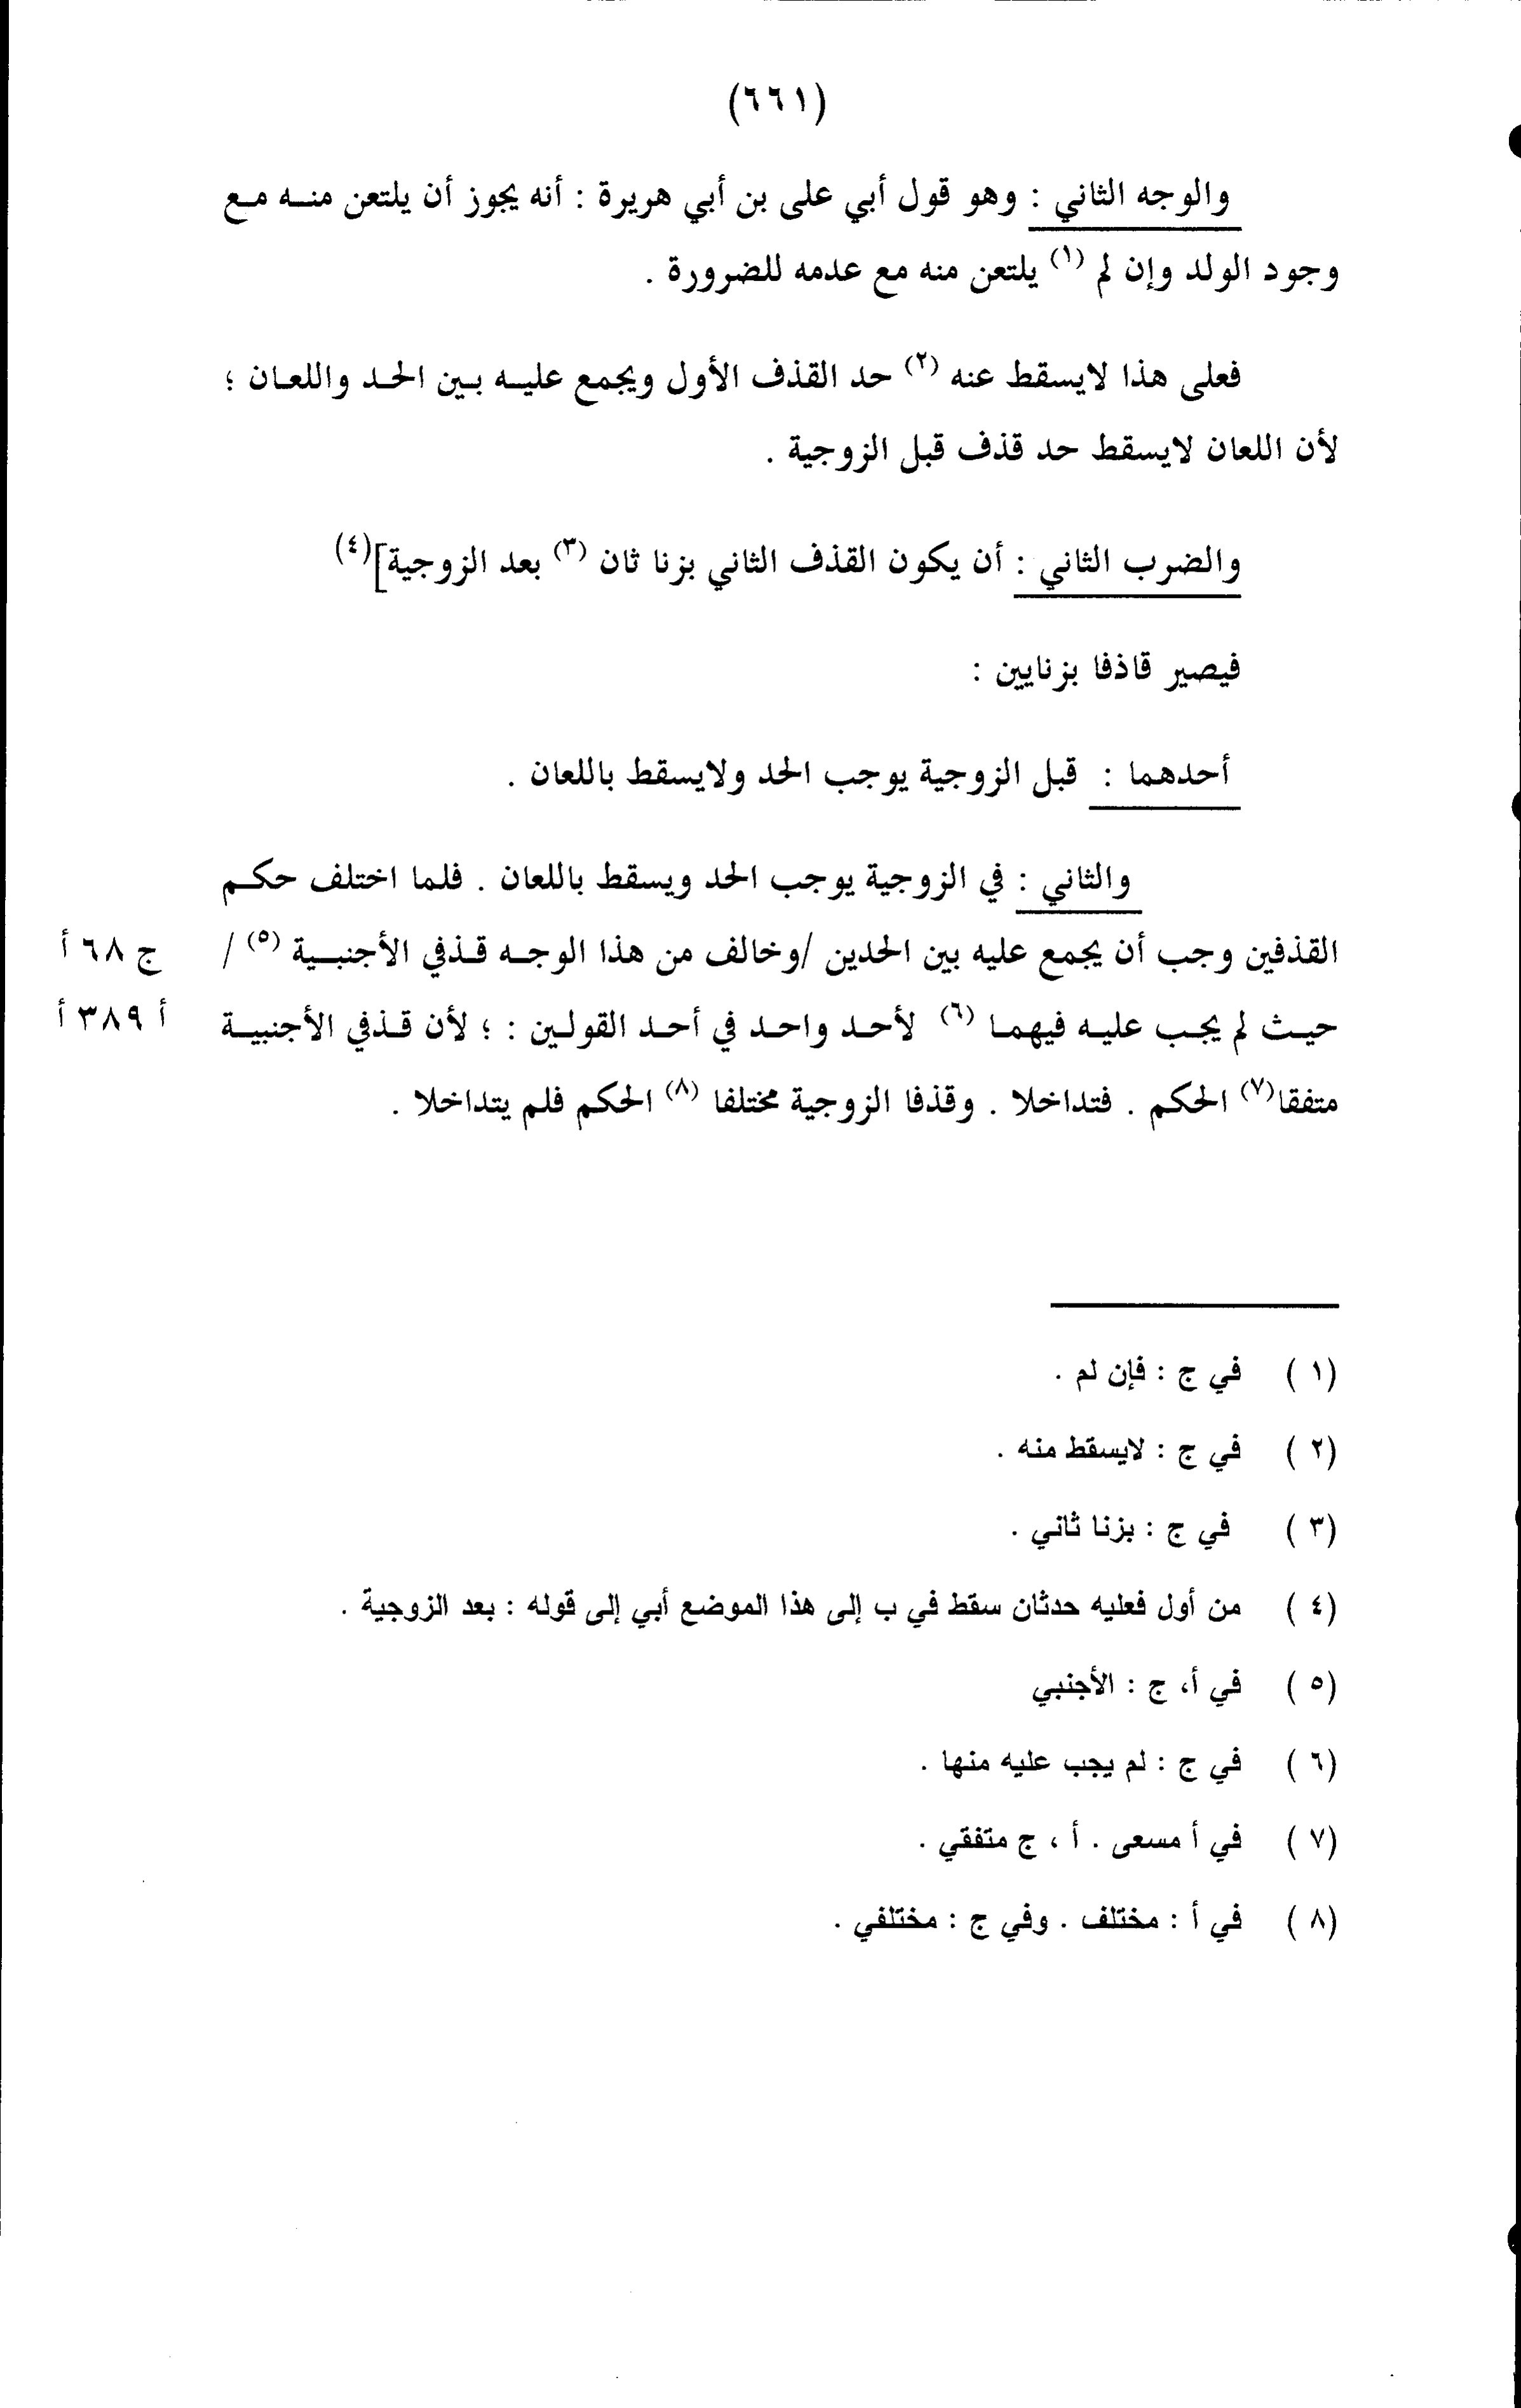 (٦٦١)
والوجه الثاني : وهو قول أبي على بن أبي هريرة : أنه يجوز أن يلتعن منه مع
وجود الولد وإن لم (١) يلتعن منه مع عدمه للضرورة .
فعلى هذا لايسقط عنه (٢) حد القذف الأول ويجمع عليه بين الحد واللعان ؛
لأن اللعان لايسقط حد قذف قبل الزوجية .
والضرب الثاني : أن يكون القذف الثاني بزنا ثان (٣) بعد الزوجية](٤)
فيصير قاذفا بزنايين :
أحدهما : قبل الزوجية يوجب الحد ولايسقط باللعان .
والثاني : في الزوجية يوجب الحد ويسقط باللعان . فلما اختلف حكم
القذفين وجب أن يجمع عليه بين الحدين /وخالف من هذا الوجه قذفي الأجنبية (٥) / ج ٦٨ أ
حيث لم يجب عليه فيهما (٦) لأحد واحد في أحد القولين : ؛ لأن قذفي الأجنبية أ ٣٨٩ أ
متفقا(٧) الحكم . فتداخلا . وقذفا الزوجية مختلفا (٨) الحكم فلم يتداخلا .
(١) في ج : فإن لم .
(٢) في ج : لايسقط منه .
(٣) في ج : بزنا ثاني .
(٤) من أول فعليه حدثان سقط في ب إلى هذا الموضع أبي إلى قوله : بعد الزوجية .
(٥) في أ، ج : الأجنبي
(٦) في ج : لم يجب عليه منها .
(٧) في أ مسعى . أ ، ج متفقي .
(٨) في أ : مختلف . وفي ج : مختلفي .